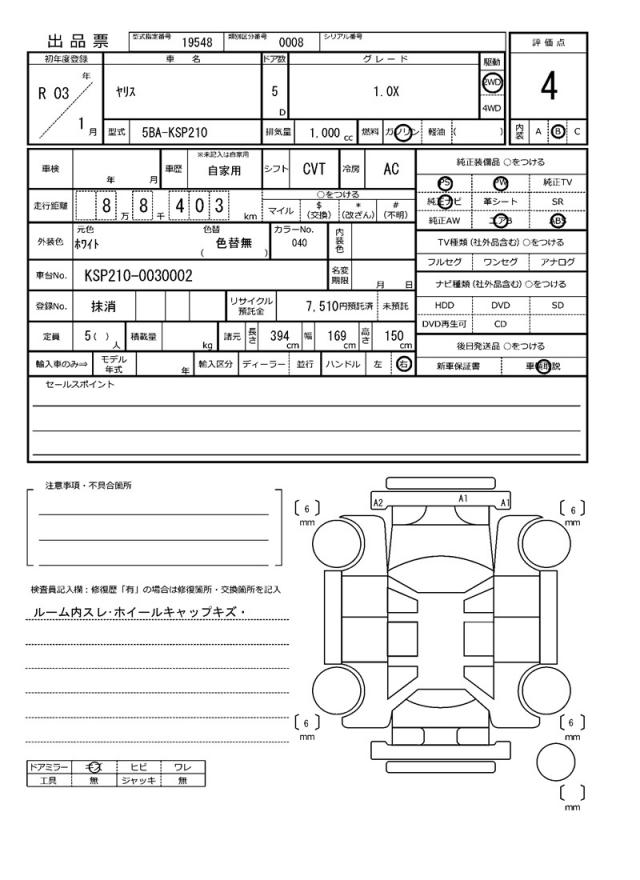 出品票 型式指定番号 19548 類別区分番号 0008 シリアル番号
評価点
4
内装 A B C
初年度登録 車名 ドア数 グレード 駆動
R 03 年 1 月
ヤリス 5 D 1.0X 2WD
4WD
型式 5BA-KSP210 排気量 1.000 cc 燃料 ガソリン 軽油 ( )
車検 年 月 車歴 ※未記入は自家用 自家用 シフト CVT 冷房 AC
走行距離 8 万 8 千 4 0 3 km
○をつける
マイル $(交換) *(改ざん) #(不明)
外装色 元色 ホワイト 色替 色替無 ( ) カラーNo. 040 内装色
車台No. KSP210-0030002 名変期限 月 日
登録No. 抹消 リサイクル預託金 7,510円預託済 未預託
定員 5( ) 人 積載量 kg 諸元 長さ 394 cm 幅 169 cm 高さ 150 cm
輸入車のみ⇒ モデル年式 年 輸入区分 ディーラー 並行 ハンドル 左 右
純正装備品 ○をつける
PS PW 純正TV
純正ナビ 革シート SR
純正AW エアB ABS
TV種類(社外品含む) ○をつける
フルセグ ワンセグ アナログ
ナビ種類(社外品含む) ○をつける
HDD DVD SD
DVD再生可 CD
後日発送品 ○をつける
新車保証書 車輌取説
セールスポイント
注意事項・不具合箇所
検査員記入欄：修復歴「有」の場合は修復箇所・交換箇所を記入
ルーム内スレ・ホイールキャップキズ・
ドアミラー キズ ヒビ ワレ
工具 無 ジャッキ 無
A2 A1 A1
[ 6 ] mm
[ 6 ] mm
[ 6 ] mm
[ 6 ] mm
[ ] mm